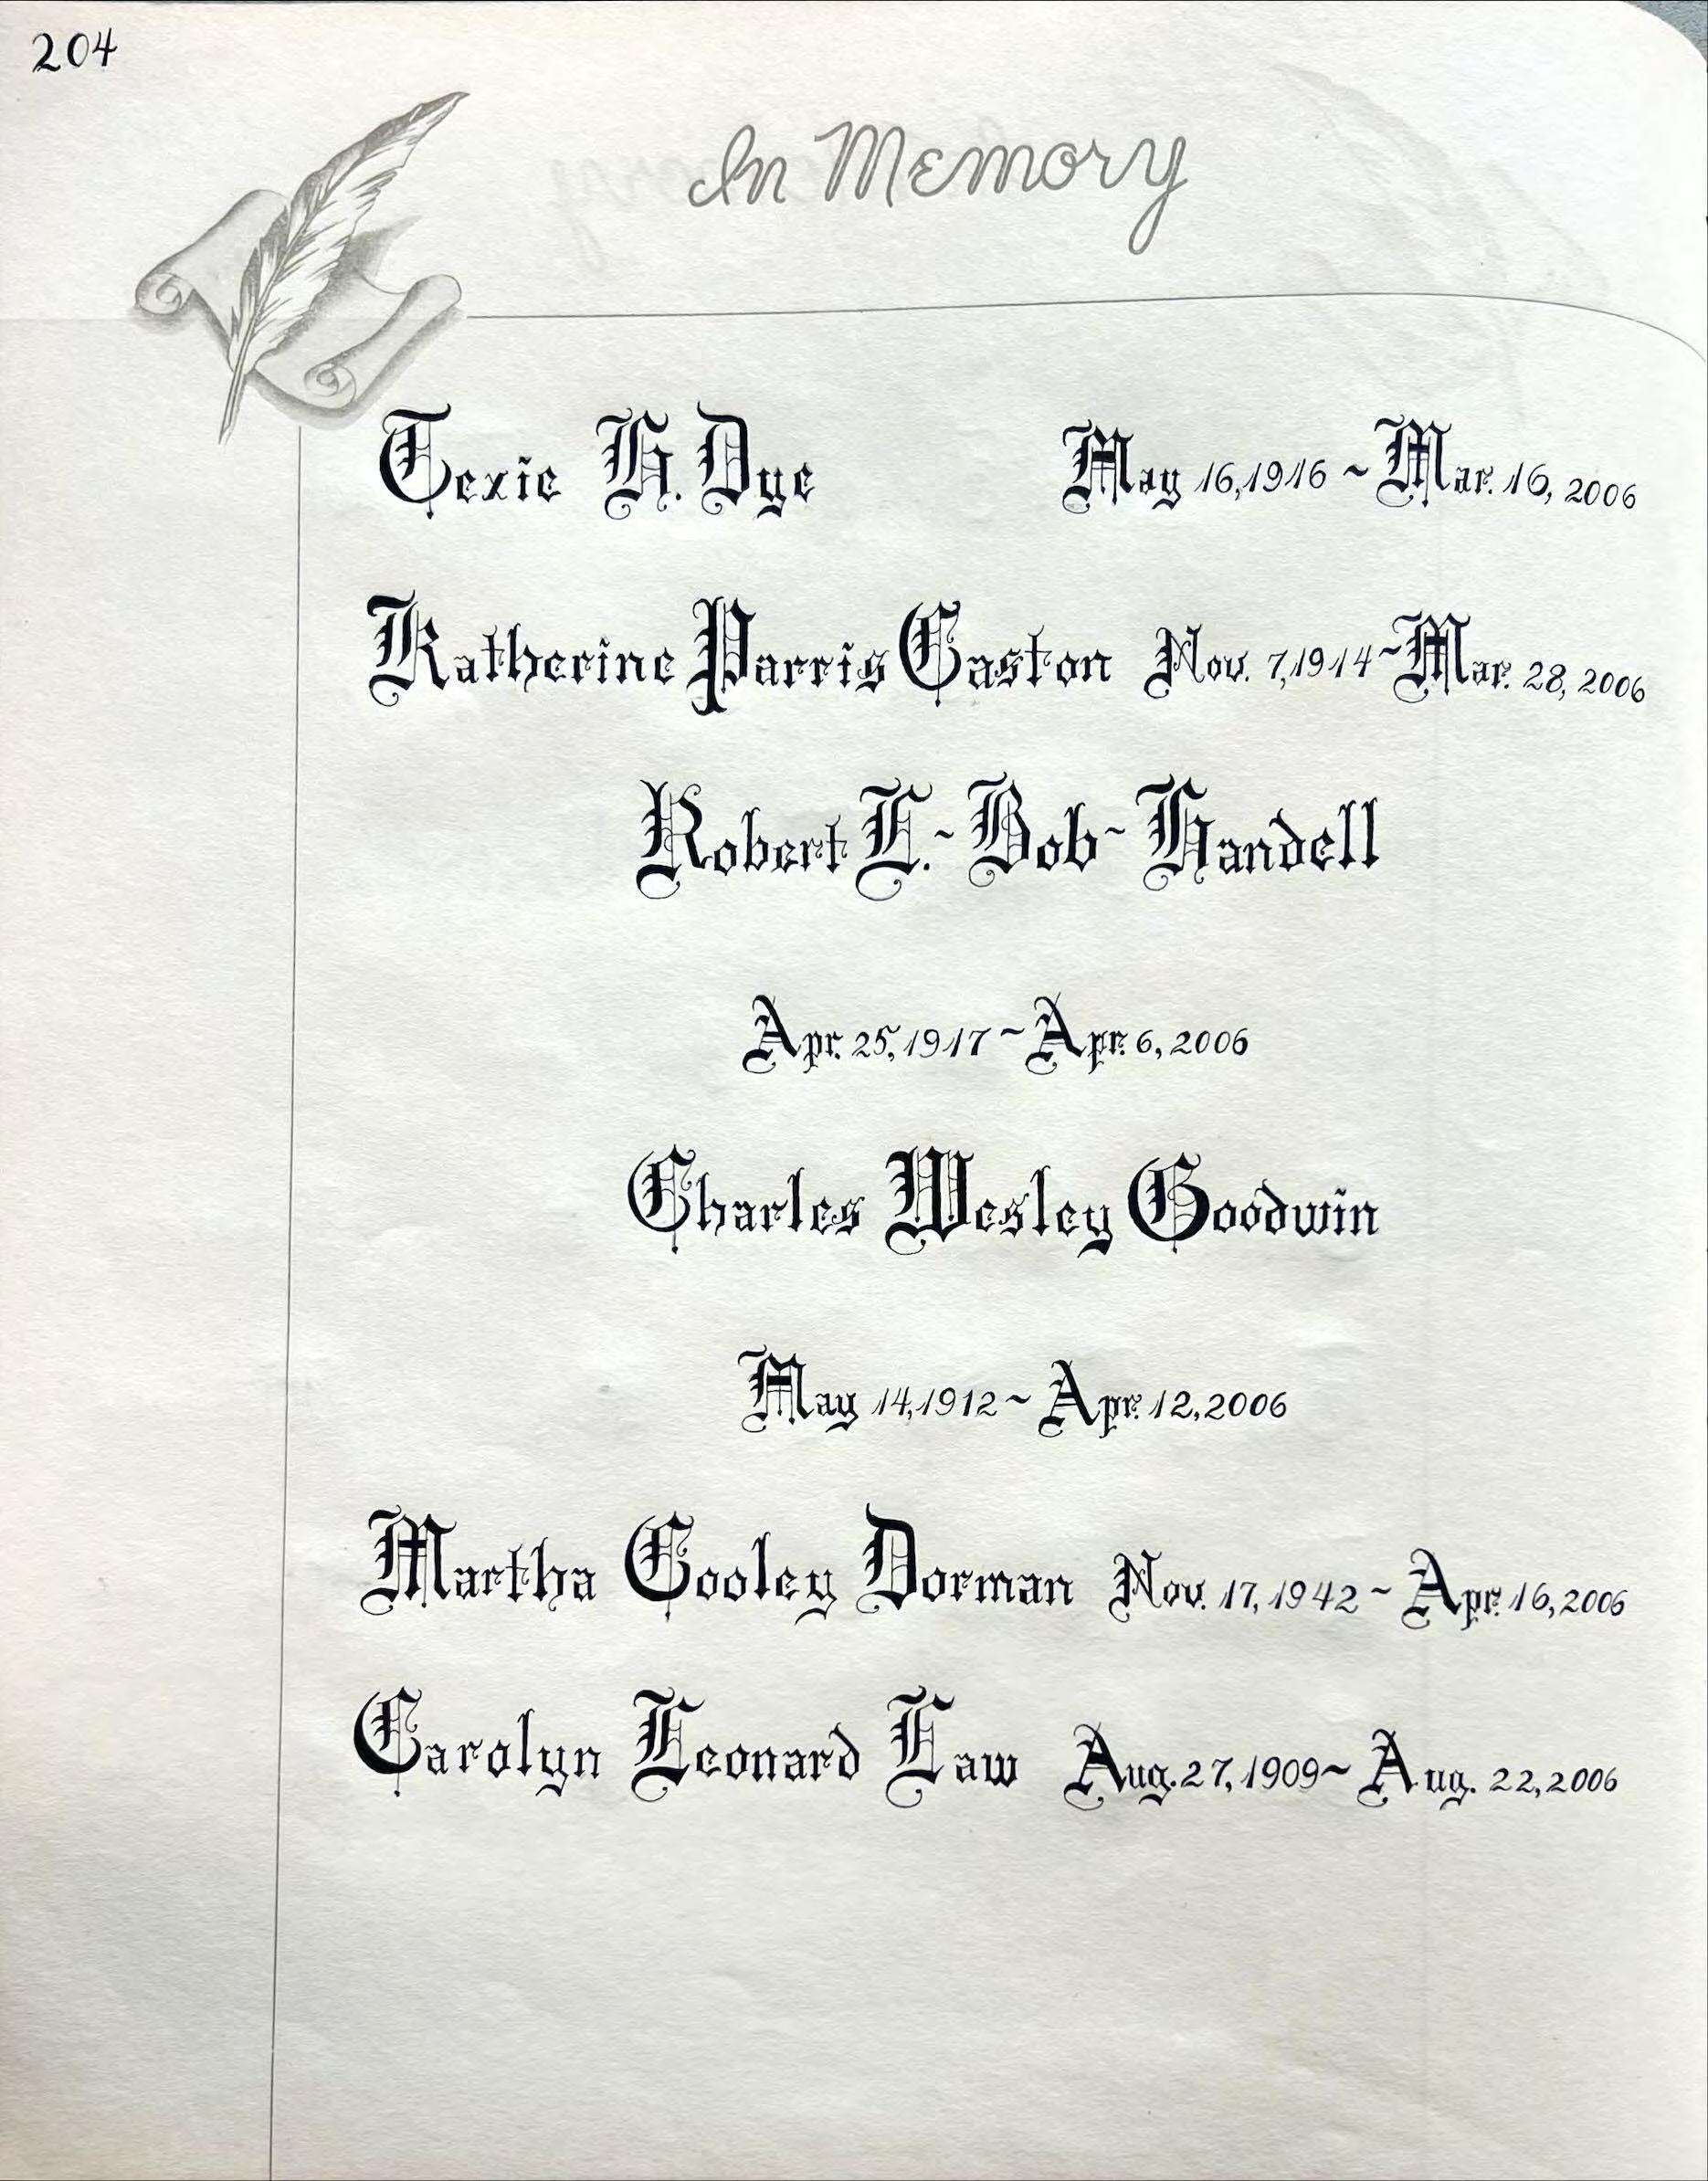 204
In Memory
Texie H. Dye May 16, 1916 ~ Mar. 16, 2006
Katherine Parris Caston Nov. 7, 1914 ~ Mar. 28, 2006
Robert L. ~ Bob ~ Handell
Apr. 25, 1917 ~ Apr. 6, 2006
Charles Wesley Goodwin
May 14, 1912 ~ Apr. 12, 2006
Martha Cooley Dorman Nov. 17, 1942 ~ Apr. 16, 2006
Carolyn Leonard Law Aug. 27, 1909 ~ Aug. 22, 2006